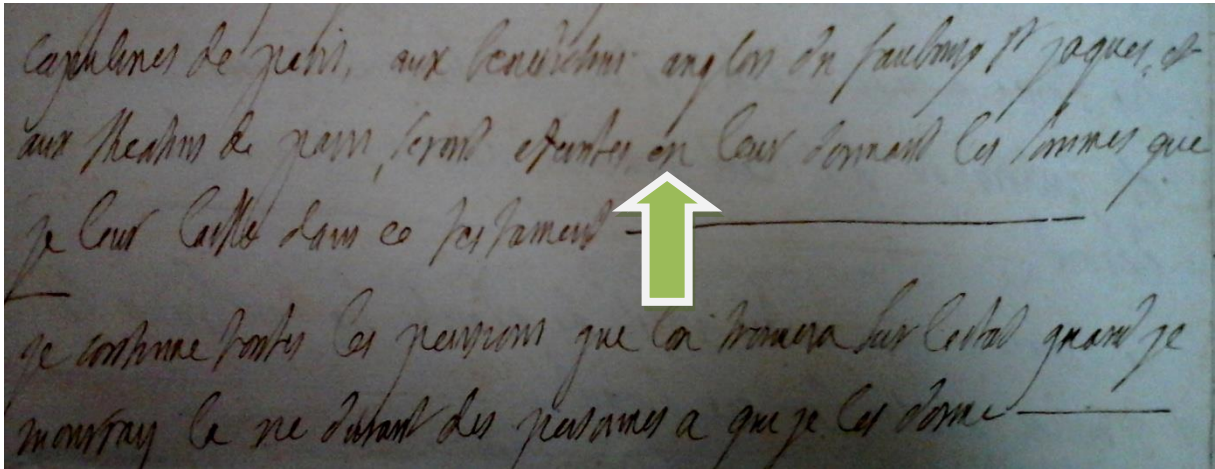 capucines de paris, aux benedictins anglois du faubourg st jaques, et
aux theatins de paris, seront eteintes, en leur donnant les sommes que
je leur laisse dans ce testament
je continue toutes les pensions que lon trouvera sur lestat quand je
mourray la vie durant des personnes a qui je les donne